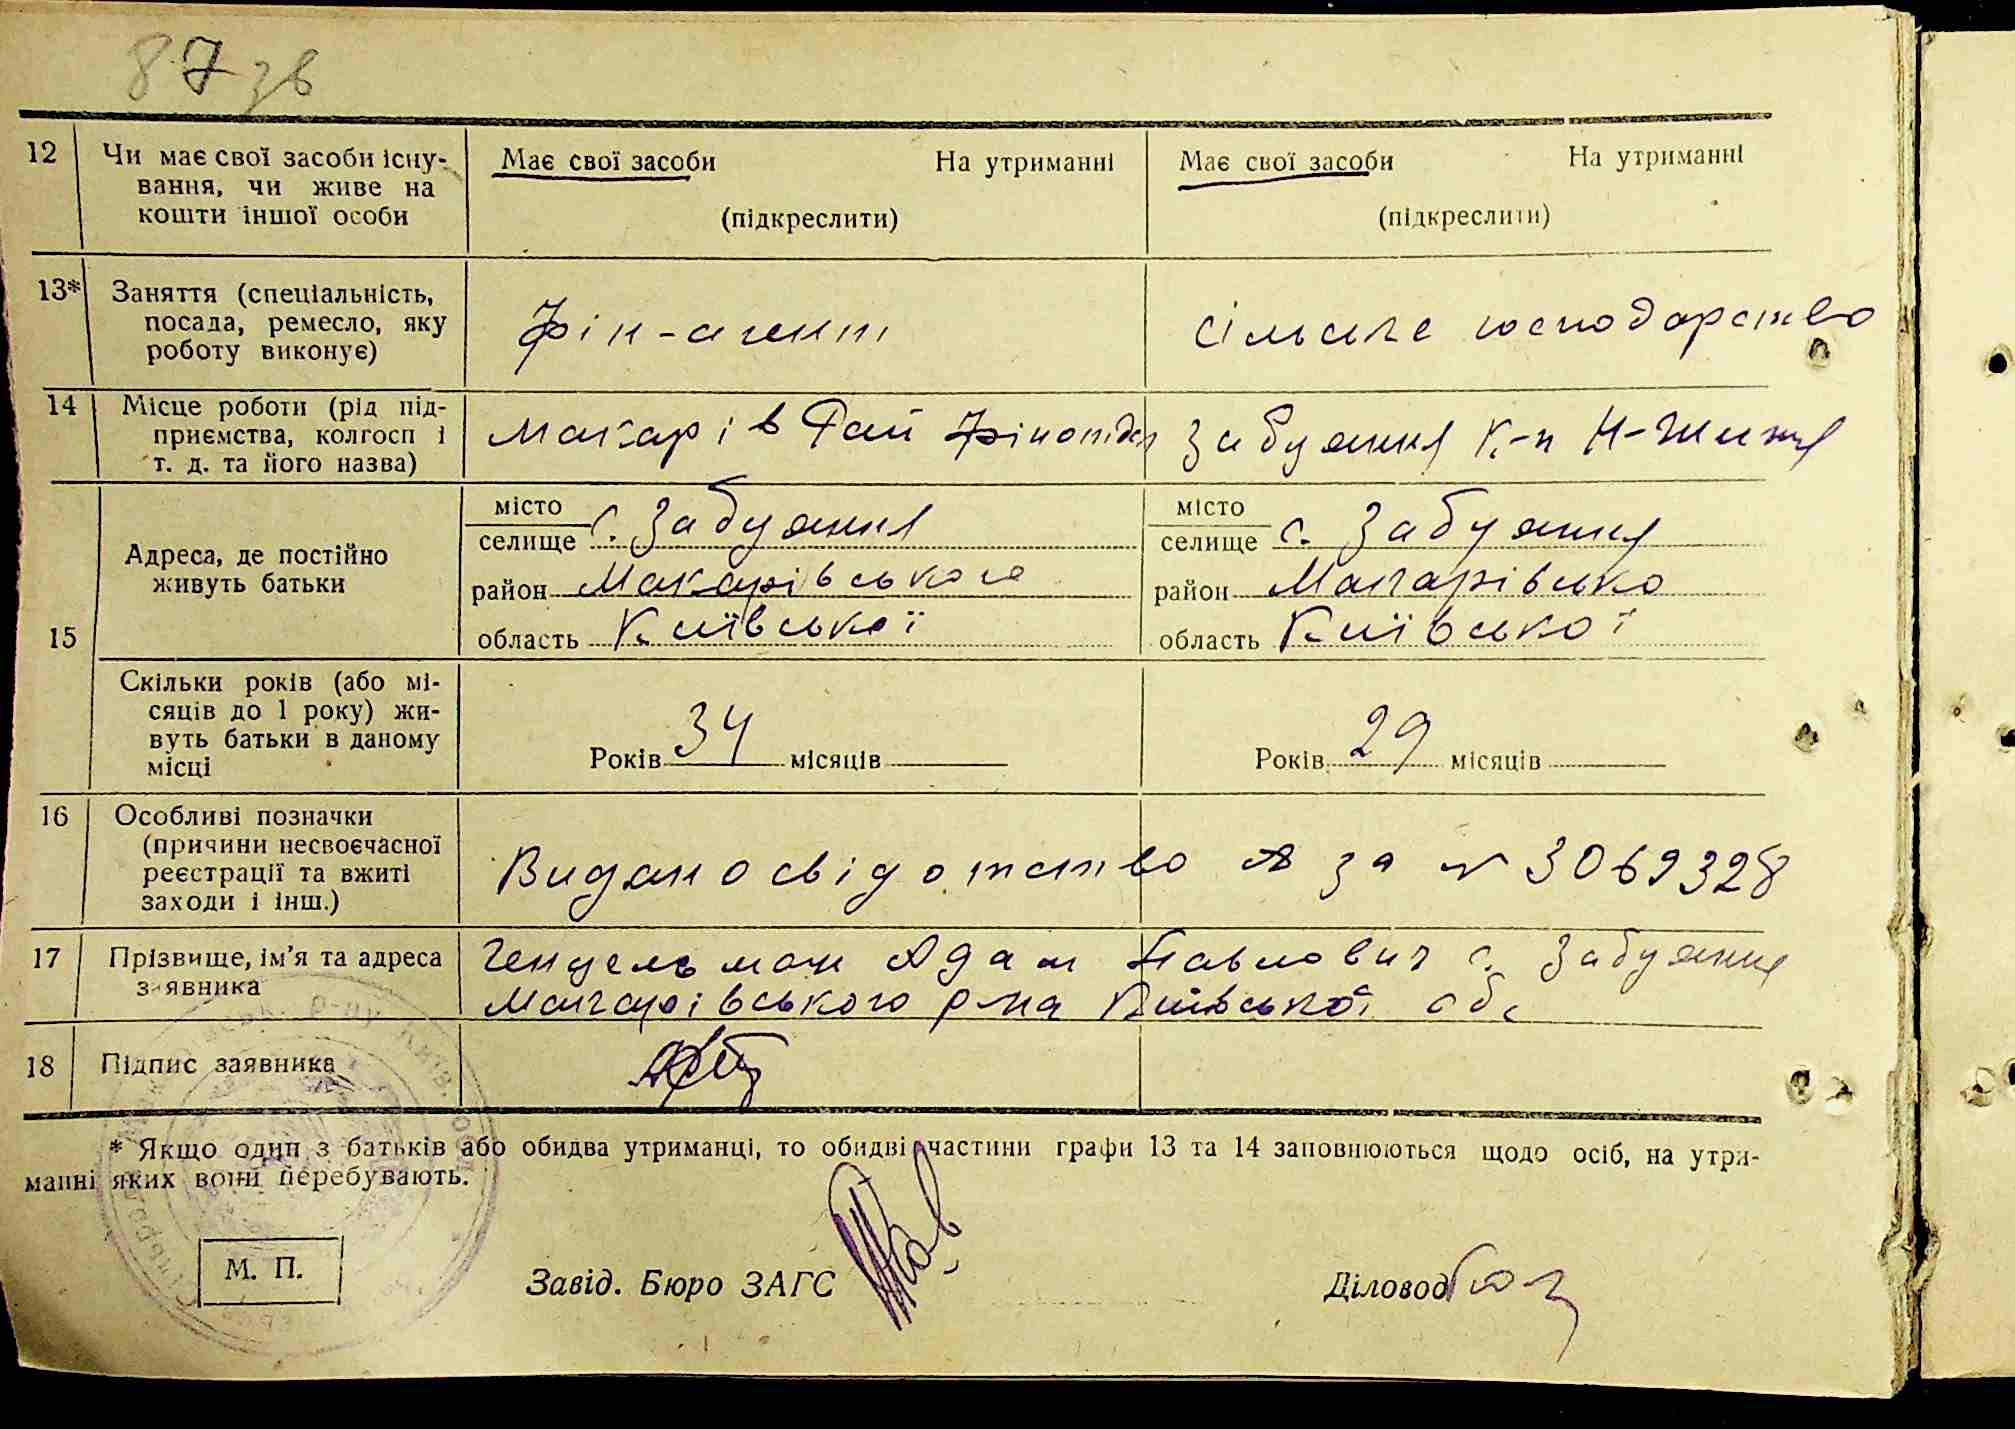 87 зв
12 Чи має свої засоби існу- Має свої засоби На утриманні Має свої засоби На утриманні
вання, чи живе на
кошти іншої особи (підкреслити) (підкреслити)
13* Заняття (спеціальність,
посада, ремесло, яку фін-агент сільське господарство
роботу виконує)
14 Місце роботи (рід під-
приємства, колгосп і Макарів Рай фінотдел Забуяння К-п Н-Життя
т. д. та його назва)
місто с. Забуяння місто с. Забуяння
селище селище
Адреса, де постійно
живуть батьки район Макарівського район Макарівсько
15 область Київської область Київської
Скільки років (або мі-
сяців до 1 року) жи-
вуть батьки в даному
місці Років 34 місяців Років 29 місяців
16 Особливі позначки
(причини несвоєчасної
реєстрації та вжиті Видано свідотство А за № 3069328
заходи і інш.)
17 Прізвище, ім’я та адреса Гендельман Адам Павлович с. Забуяння
заявника Макарівського р-на Київської обл
18 Підпис заявника
* Якщо один з батьків або обидва утриманці, то обидві частини графи 13 та 14 заповнюються щодо осіб, на утри-
манні яких вони перебувають.
М. П. Завід. Бюро ЗАГС Діловод